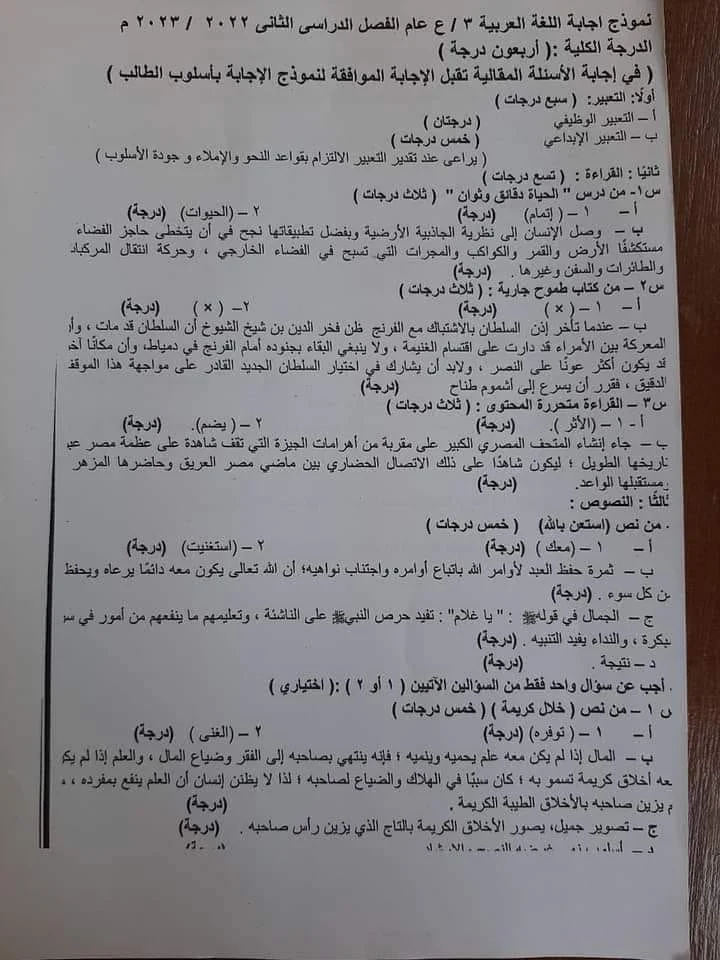 نموذج اجابة اللغة العربية ٣ / ع عام الفصل الدراسى الثانى ٢٠٢٢ / ٢٠٢٣ م
الدرجة الكلية :( أربعون درجة )
( في إجابة الأسئلة المقالية تقبل الإجابة الموافقة لنموذج الإجابة بأسلوب الطالب )
أولًا: التعبير: ( سبع درجات )
أ – التعبير الوظيفي ( درجتان )
ب – التعبير الإبداعي ( خمس درجات )
( يراعى عند تقدير التعبير الالتزام بقواعد النحو والإملاء و جودة الأسلوب )
ثانيًا : القراءة : ( تسع درجات )
س١- من درس " الحياة دقائق وثوان " ( ثلاث درجات )
أ – ١ – (إتمام) (درجة) ٢ – (الحيوات) (درجة)
ب – وصل الإنسان إلى نظرية الجاذبية الأرضية وبفضل تطبيقاتها نجح في أن يتخطى حاجز الفضاء
مستكشفًا الأرض والقمر والكواكب والمجرات التي تسبح في الفضاء الخارجي ، وحركة انتقال
والطائرات والسفن وغيرها . (درجة)
س٢ – من كتاب طموح جارية : ( ثلاث درجات )
أ – ١ – ( × ) (درجة) ٢– ( × ) (درجة)
ب – عندما تأخر إذن السلطان بالاشتباك مع الفرنج ظن فخر الدين بن شيخ الشيوخ أن السلطان قد مات ،
المعركة بين الأمراء قد دارت على اقتسام الغنيمة ، ولا ينبغي البقاء بجنوده أمام الفرنج في دمياط، وأن مكانًا
قد يكون أكثر عونًا على النصر ، ولابد أن يشارك في اختيار السلطان الجديد القادر على مواجهة هذا
الدقيق ، فقرر أن يسرع إلى أشموم طناح (درجة)
س٣ – القراءة متحررة المحتوى : ( ثلاث درجات )
أ - ١ – (الأثر ). (درجة) ٢ – ( يضم). (درجة)
ب – جاء إنشاء المتحف المصري الكبير على مقربة من أهرامات الجيزة التي تقف شاهدة على عظمة مصر
تاريخها الطويل ؛ ليكون شاهدًا على ذلك الاتصال الحضاري بين ماضي مصر العريق وحاضرها المزهر
ومستقبلها الواعد. (درجة)
ثالثًا : النصوص :
من نص (استعن بالله) ( خمس درجات )
أ – ١ – (معك ) (درجة) ٢ – (استغنيت) (درجة)
ب – ثمرة حفظ العبد لأوامر الله باتباع أوامره واجتناب نواهيه؛ أن الله تعالى يكون معه دائمًا يرعاه ويحفظ
من كل سوء . (درجة)
ج – الجمال في قولهﷺ : " يا غلام" : تفيد حرص النبيﷺ على الناشئة ، وتعليمهم ما ينفعهم من أمور في
مبكرة ، والنداء يفيد التنبيه . (درجة)
د – نتيجة . (درجة)
. أجب عن سؤال واحد فقط من السؤالين الآتيين ( ١ أو ٢ ) :( اختياري )
س ١ – من نص ( خلال كريمة ) ( خمس درجات )
أ – ١ – ( توفره) (درجة) ٢ – (الغنى ) (درجة)
ب – المال إذا لم يكن معه علم يحميه وينميه ؛ فإنه ينتهي بصاحبه إلى الفقر وضياع المال ، والعلم إذا لم
معه أخلاق كريمة تسمو به ؛ كان سببًا في الهلاك والضياع لصاحبه ؛ لذا لا يظنن إنسان أن العلم ينفع بمفرده ،
لم يزين صاحبه بالأخلاق الطيبة الكريمة . (درجة)
ج – تصوير جميل، يصور الأخلاق الكريمة بالتاج الذي يزين رأس صاحبه . (درجة)